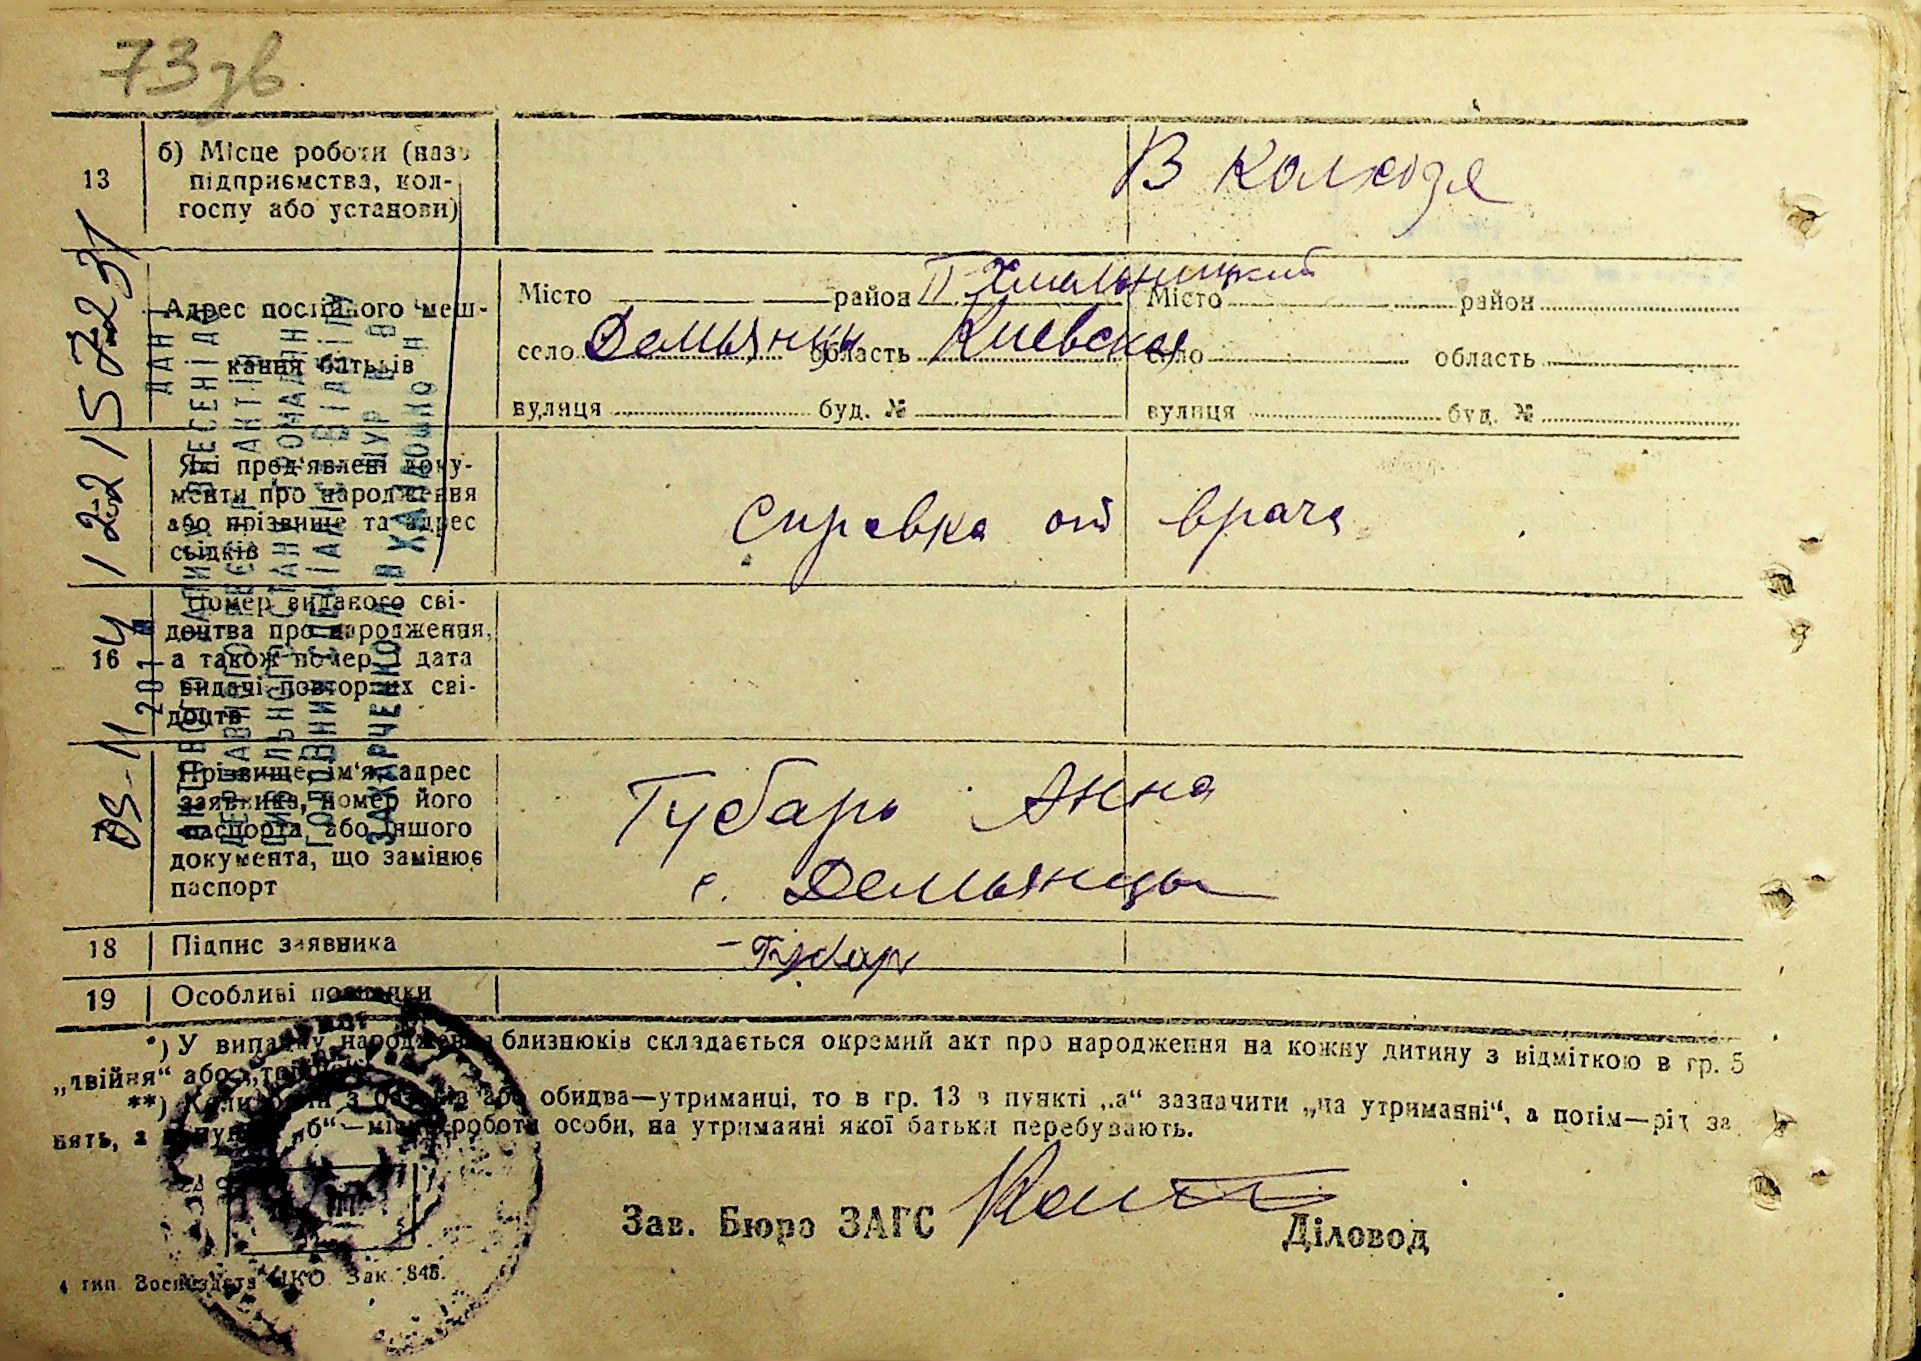 73зв.
13
б) Місце роботи (назв
підприємства, кол-
госпу або установи)
В колхозе
Адрес постійного меш-
кання батьків
Місто район П. Хмельницкий
село Демьянцы область Киевская
вулиця буд. №
Місто район
село область
вулиця буд. №
Які пред'явлені доку-
менти про народження
або прізвище та адрес
свідків
Справка от врача
16
Номер виданого сві-
доцтва про народження,
а також номер і дата
видачі повторних сві-
доцтв
Прізвище, ім'я, адрес
заявника, номер його
паспорта або іншого
документа, що замінює
паспорт
Губарь Анна
с. Демьянцы
18 Підпис заявника
Губар
19 Особливі помітки
*) У випадку народження близнюків складається окремий акт про народження на кожну дитину з відміткою в гр. 5
„двійня“ або
**) Коли один з батьків або обидва—утриманці, то в гр. 13 в пункті „а“ зазначити „на утриманні“, а потім—рід за
нять, а в пункті „б“—місце роботи особи, на утриманні якої батьки перебувають.
Зав. Бюро ЗАГС
Діловод
Зак. 846.
05-11 4 122157231
ДАНІ
201
АКТОВОГО ЗАПИСУ ВНЕСЕНІ ДО
ДЕРЖАВНОГО РЕЄСТРУ АКТІВ
ЦИВІЛЬНОГО СТАНУ ГРОМАДЯН
ГОЛОВНИЙ СПЕЦІАЛІСТ ВІДДІЛУ
ЗАХАРЧЕНКО